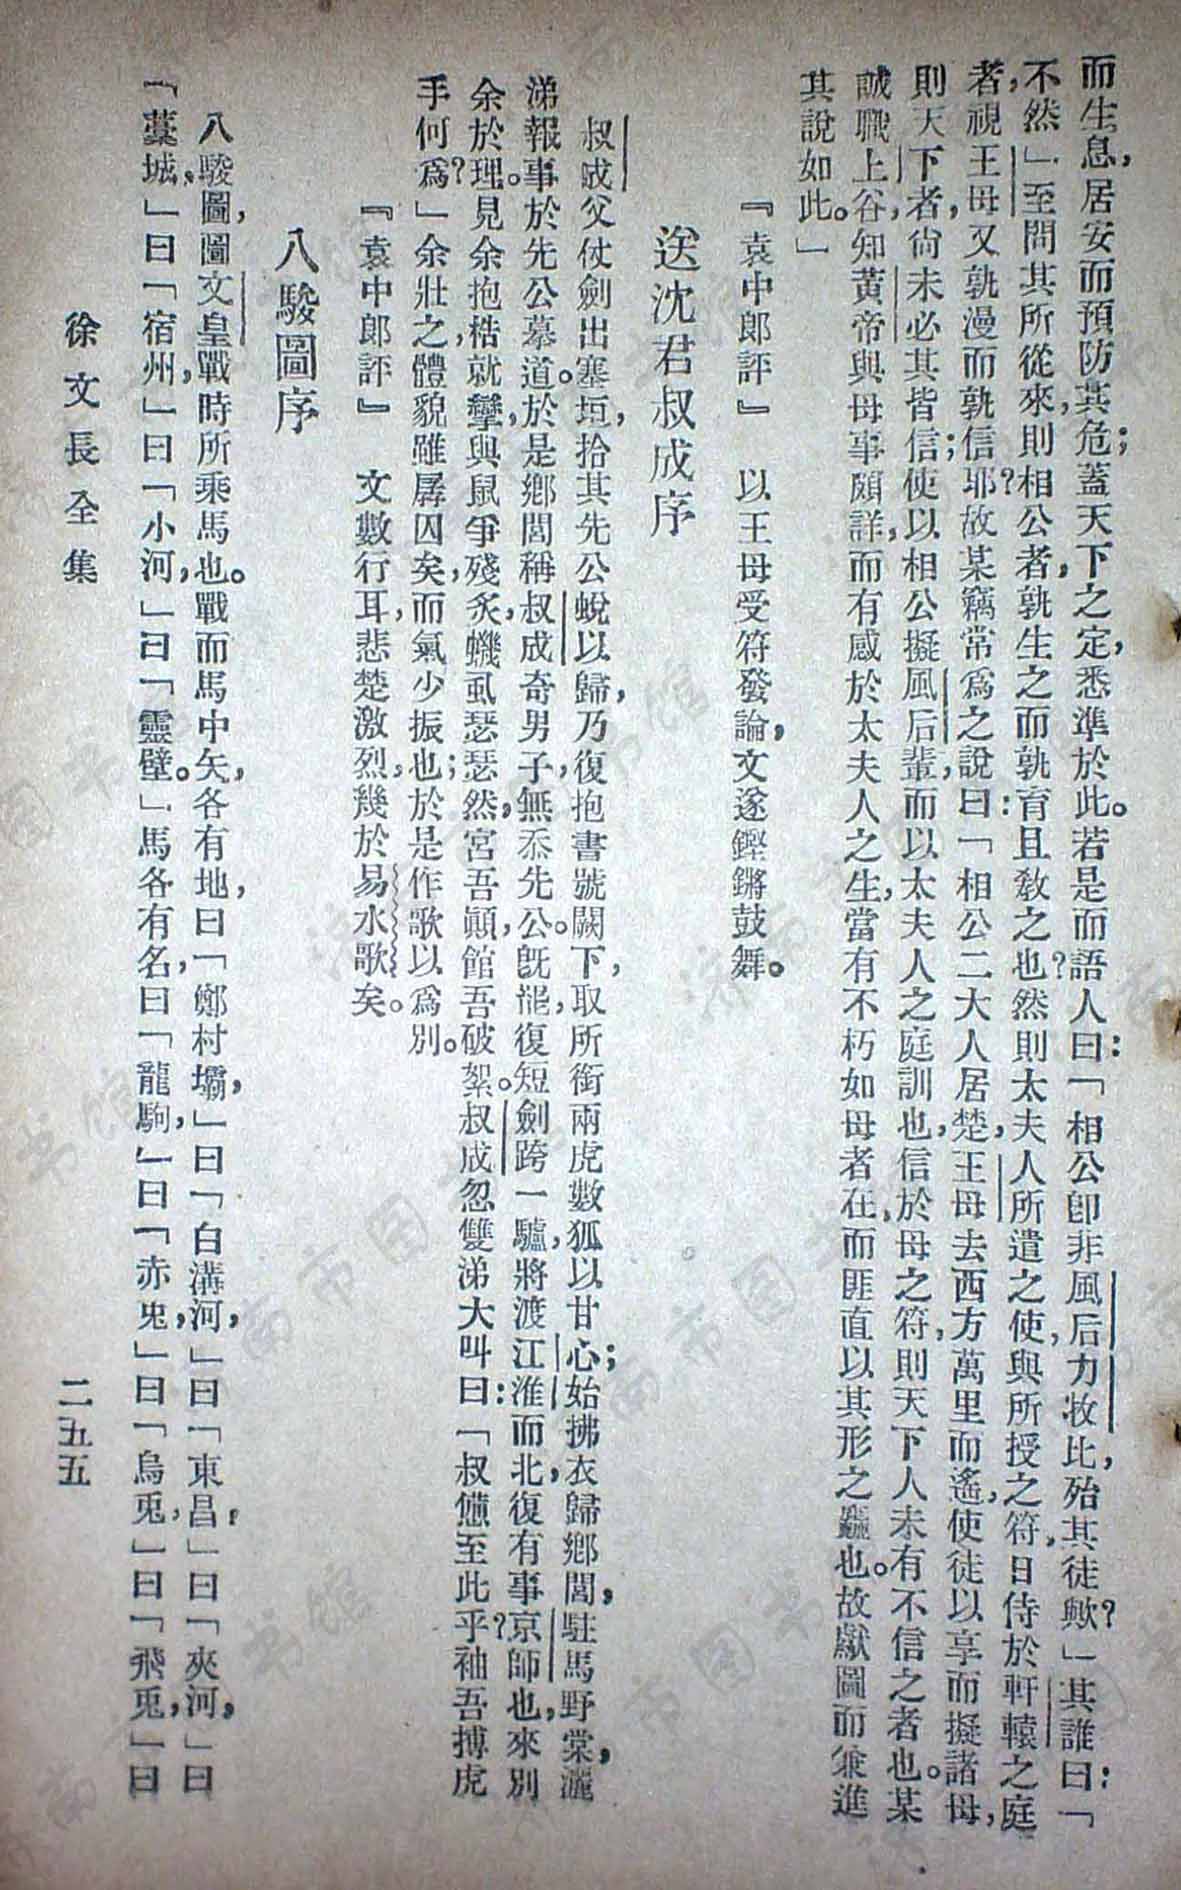 而生息，居安而預防其危；蓋天下之定，悉準於此。若是而語人曰：「相公卽非風后力牧比，殆其徒歟？」其誰曰：「
不然」至問其所從來，則相公者，孰生之而孰育且敎之也？然則太夫人所遣之使，與所授之符，日侍於軒轅之庭
者，視王母又孰漫而孰信耶？故某竊常爲之說曰：「相公二大人居楚，王母去西方萬里而遙，使徒以享而擬諸母，
則天下者，尙未必其皆信；使以相公擬風后輩，而以太夫人之庭訓也，信於母之符，則天下人未有不信之者也。某
誠職上谷，知黃帝與母事頗詳，而有感於太夫人之生，當有不朽如母者在，而匪直以其形之龘也。故獻圖而兼進
其說如此。」
『袁中郎評』　以王母受符發論，文遂鏗鏘鼓舞。
送沈君叔成序
叔成父仗劍出塞垣，拾其先公蛻以歸，乃復抱書號闕下，取所銜兩虎數狐以甘心；始拂衣歸鄉閭，駐馬野棠，灑
涕報事於先公墓道。於是鄉閭稱叔成奇男子，無忝先公。旣能復短劍跨一驢，將渡江淮而北，復有事京師也，來別
余於理。見余抱梏就攣，與鼠爭殘炙，蟣虱瑟瑟然，宮吾顚，館吾破絮。叔成忽雙涕大叫曰：「叔憊至此乎？袖吾搏虎
手何爲？」余壯之，體貌雖孱囚矣，而氣少振也；於是作歌以爲別。
『袁中郎評』　文數行耳，悲楚激烈，幾於易水歌矣。
八駿圖序
八駿圖，圖文皇戰時所乘馬也。戰而馬中矢，各有地，曰「鄭村壩，」曰「白溝河，」曰「東昌，」曰「夾河，」曰
「藁城，」曰「宿州，」曰「小河，」曰「靈壁。」馬各有名，曰「龍駒，」曰「赤兎，」曰「烏兎，」曰「飛兎，」曰
徐文長全集　二五五